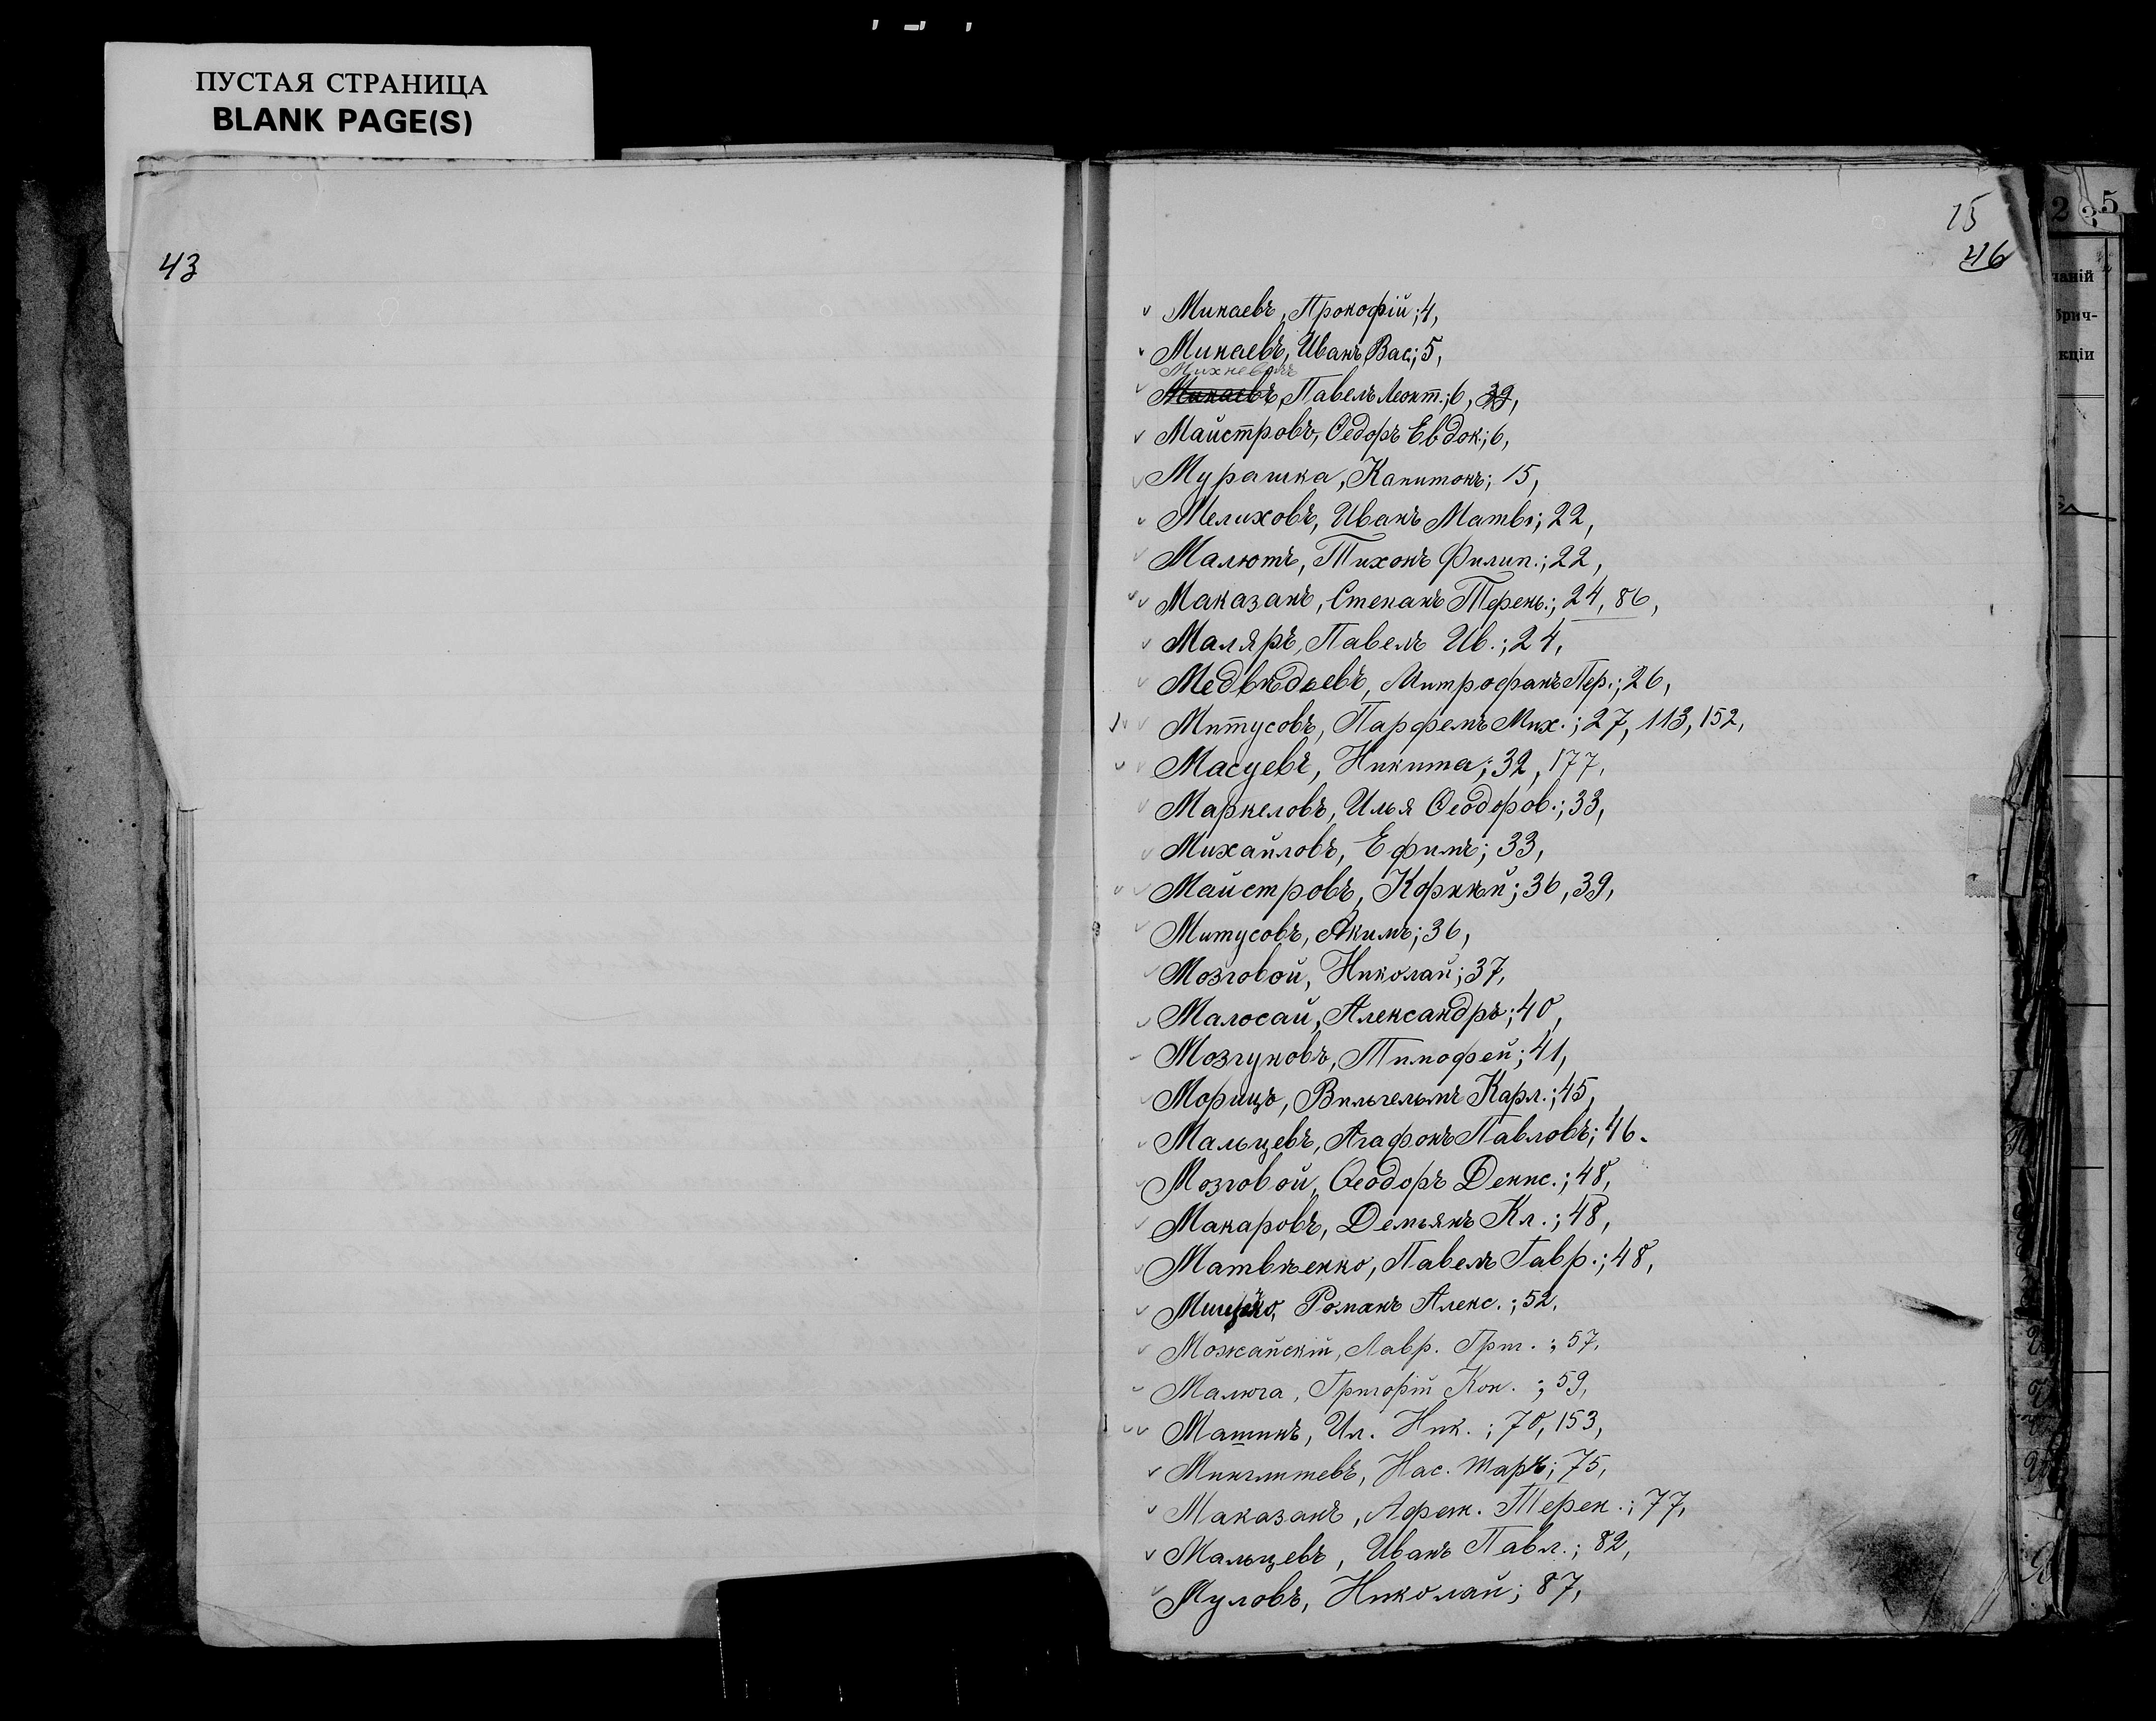 ПУСТАЯ СТРАНИЦА
BLANK PAGE(S)
43
15
46
Минаевъ, Прокофій; 4,
Минаевъ, Иванъ Вас.; 5,
Михневичъ
Минаевъ, Павелъ Леонт.; 6, 39,
Майстровъ, Ѳедоръ Евдок.; 6,
Мурашка, Капитонъ; 15,
Мелиховъ, Иванъ Матв.; 22,
Малютъ, Тихонъ Филип.; 22,
Маказанъ, Степанъ Терен.; 24, 86,
Маляръ, Павелъ Ив.; 24,
Медвѣдьевъ, Митрофанъ Пер.; 26,
Митусовъ, Парфемъ Мих.; 27, 113, 152,
Масуевъ, Никита; 32, 177,
Маркеловъ, Илья Ѳеодоров.; 33,
Михайловъ, Ефимъ; 33,
Майстровъ, Корнѣй; 36, 39,
Митусовъ, Акимъ; 36,
Мозговой, Николай; 37,
Малосай, Александръ; 40,
Мозгуновъ, Тимофей; 41,
Морицъ, Вильгельмъ Карл.; 45,
Мальцевъ, Агафонъ Павловъ; 46.
Мозговой, Ѳеодоръ Денис.; 48,
Макаровъ, Демьянъ Кл.; 48,
Матвѣенко, Павелъ Гавр.; 48,
Романъ Алекс.; 52,
Можайскій, Лавр. Григ.; 57,
Малюга, Григорій Кон.; 59,
Машинъ, Ил. Ник.; 70, 153,
Нас. Марк; 75,
Маказанъ, Афан. Терен.; 77,
Мальцевъ, Иванъ Павл.; 82,
Муловъ, Николай; 87,
2
5
чаній
брич-
кціи